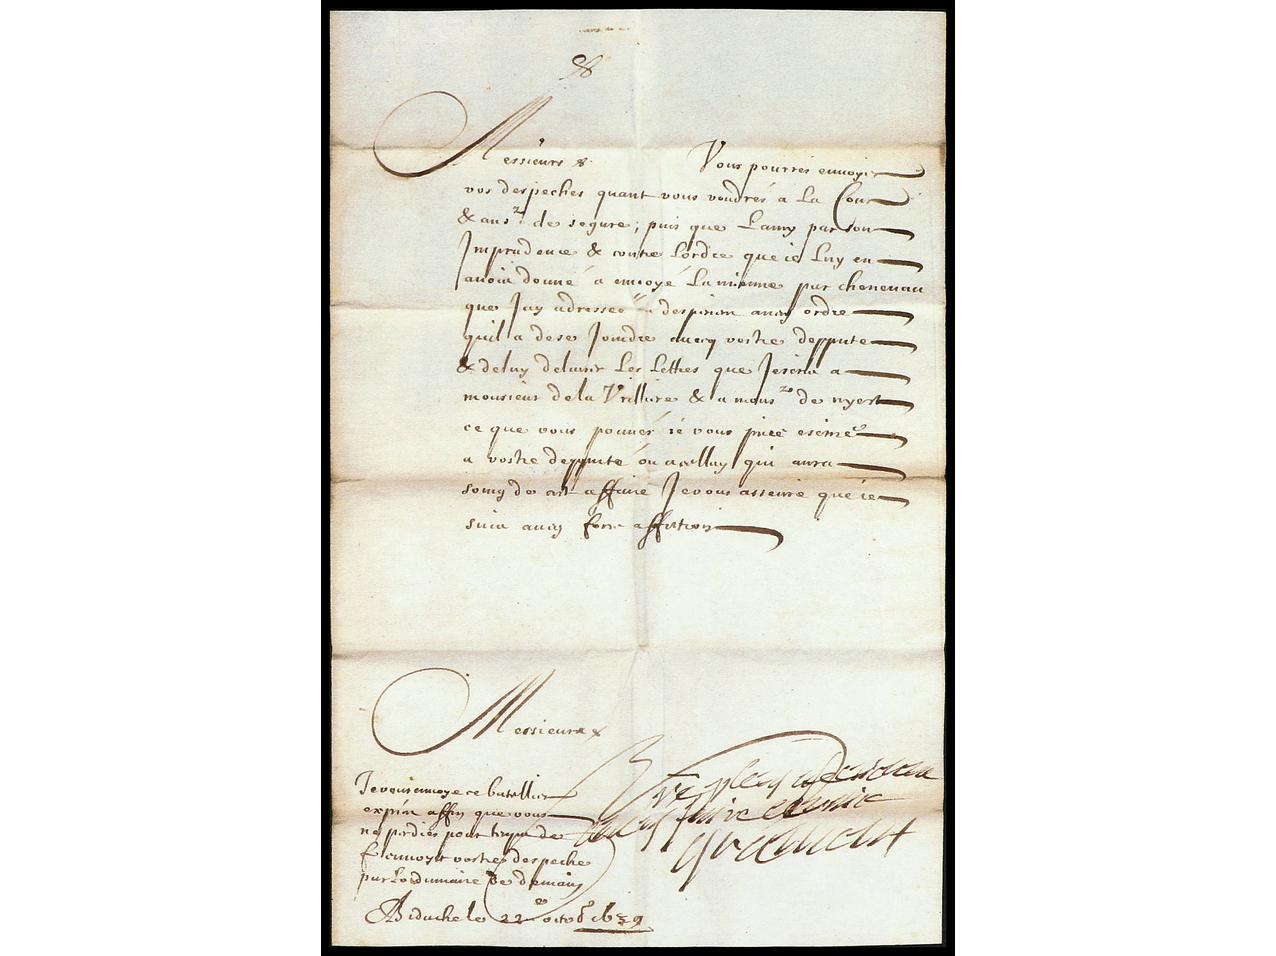 Messieurs Vous pourrés enuoyer
vos despeches quant vous voudrés a La Cour
& a monsr de segure; puis que Lamy par son
Imprudence & contre Lordre que ie Luy en
auois donné a enuoyé La mienne par
que Jay adressee a despinien auecq ordre
quil a de se Joindre auecq vostre deppute
& de luy deliurer Les Lettres que Jescris a
monsieur de la Vrilliere & a monsr de nyert
ce que vous pouués ie vous prie escrire
a vostre depputé ou a celluy qui aura
soing de cet affaire Je vous asseure que ie
suis auecq force affection
Messieurs
Je vous enuoye ce batellier
exprés affin que vous
ne perdiés point temps de
enuoyer vostre despeche
par Lordinaire de demain
Vre
faire seruice
Gramont
A Bidache le 22e octobre 1639